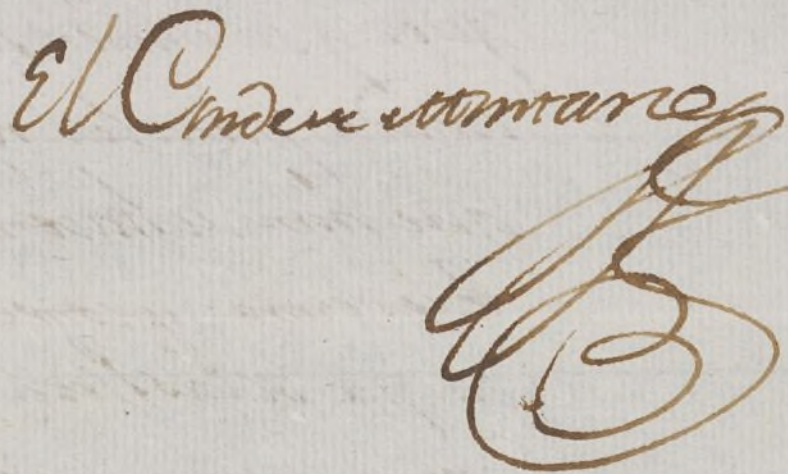 El Conde de Montarco